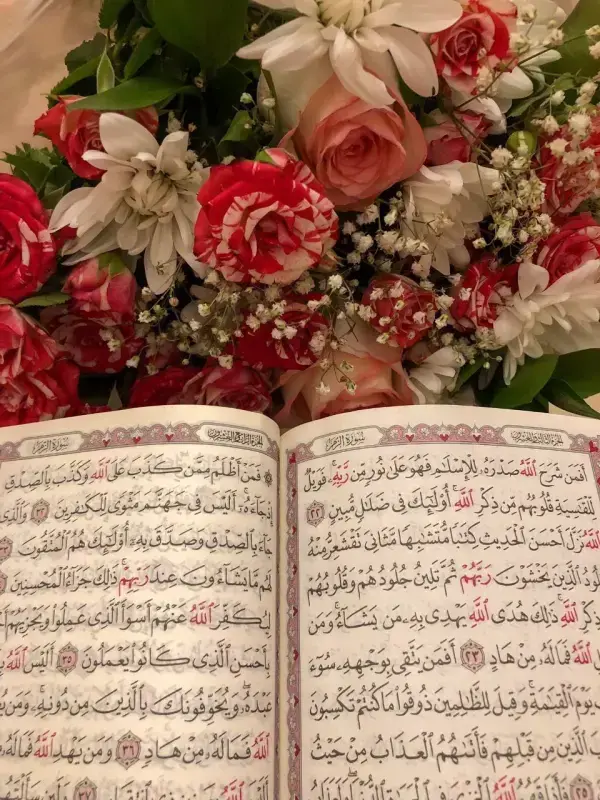 الجزء الثالث والعشرون سورة الزمر
أَفَمَن شَرَحَ ٱللَّهُ صَدْرَهُۥ لِلْإِسْلَٰمِ فَهُوَ عَلَىٰ نُورٍ مِّن رَّبِّهِۦ فَوَيْلٌ
لِّلْقَٰسِيَةِ قُلُوبُهُم مِّن ذِكْرِ ٱللَّهِ أُو۟لَٰٓئِكَ فِى ضَلَٰلٍ مُّبِينٍ ٢٢
ٱللَّهُ نَزَّلَ أَحْسَنَ ٱلْحَدِيثِ كِتَٰبًا مُّتَشَٰبِهًا مَّثَانِىَ تَقْشَعِرُّ مِنْهُ
جُلُودُ ٱلَّذِينَ يَخْشَوْنَ رَبَّهُمْ ثُمَّ تَلِينُ جُلُودُهُمْ وَقُلُوبُهُمْ
ذِكْرِ ٱللَّهِ ذَٰلِكَ هُدَى ٱللَّهِ يَهْدِى بِهِۦ مَن يَشَآءُ وَمَن
ٱللَّهُ فَمَا لَهُۥ مِنْ هَادٍ ٢٣ أَفَمَن يَتَّقِى بِوَجْهِهِۦ سُوٓءَ
يَوْمَ ٱلْقِيَٰمَةِ وَقِيلَ لِلظَّٰلِمِينَ ذُوقُوا۟ مَا كُنتُمْ تَكْسِبُونَ
ٱلَّذِينَ مِن قَبْلِهِمْ فَأَتَىٰهُمُ ٱلْعَذَابُ مِنْ حَيْثُ
٢٥ فَأَذَاقَهُمُ ٱللَّهُ ٱلْخِزْىَ فِى ٱلْحَيَوٰةِ ٱلدُّنْيَا وَلَعَذَابُ
الجزء الرابع والعشرون سورة الزمر
فَمَنْ أَظْلَمُ مِمَّن كَذَبَ عَلَى ٱللَّهِ وَكَذَّبَ بِٱلصِّدْقِ
إِذْ جَآءَهُۥٓ أَلَيْسَ فِى جَهَنَّمَ مَثْوًى لِّلْكَٰفِرِينَ ٣٢ وَٱلَّذِى
جَآءَ بِٱلصِّدْقِ وَصَدَّقَ بِهِۦٓ أُو۟لَٰٓئِكَ هُمُ ٱلْمُتَّقُونَ ٣٣
لَهُم مَّا يَشَآءُونَ عِندَ رَبِّهِمْ ذَٰلِكَ جَزَآءُ ٱلْمُحْسِنِينَ
لِيُكَفِّرَ ٱللَّهُ عَنْهُمْ أَسْوَأَ ٱلَّذِى عَمِلُوا۟ وَيَجْزِيَهُمْ
بِأَحْسَنِ ٱلَّذِى كَانُوا۟ يَعْمَلُونَ ٣٥ أَلَيْسَ ٱللَّهُ
عَبْدَهُۥ وَيُخَوِّفُونَكَ بِٱلَّذِينَ مِن دُونِهِۦ وَمَن
ٱللَّهُ فَمَا لَهُۥ مِنْ هَادٍ ٣٦ وَمَن يَهْدِ ٱللَّهُ فَمَا لَهُۥ
ٱللَّهُ بِعَزِيزٍ ذِى ٱنتِقَامٍ ٣٧ وَلَئِن سَأَلْتَهُم